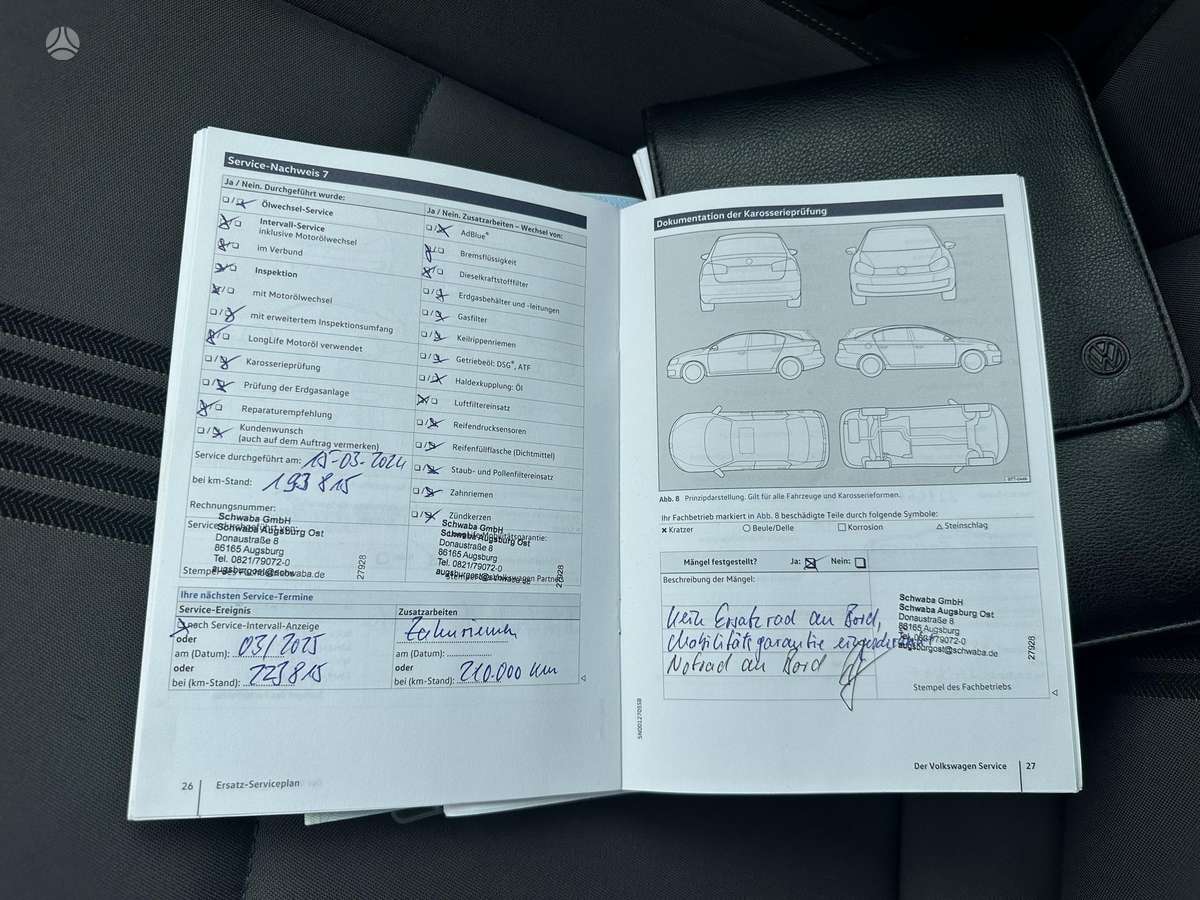 Service-Nachweis 7
Ja / Nein. Durchgeführt wurde:
Ölwechsel-Service
Intervall-Service
inklusive Motorölwechsel
im Verbund
Inspektion
mit Motorölwechsel
mit erweitertem Inspektionsumfang
LongLife Motoröl verwendet
Karosserieprüfung
Prüfung der Erdgasanlage
Reparaturempfehlung
Kundenwunsch
(auch auf dem Auftrag vermerken)
Service durchgeführt am: 15-03-2024
bei km-Stand: 193815
Rechnungsnummer:
Schwaba GmbH
Schwaba Augsburg Ost
Donaustraße 8
86165 Augsburg
Tel. 0821/79072-0
augsburgost@schwaba.de
27928
Ja / Nein. Zusatzarbeiten – Wechsel von:
AdBlue®
Bremsflüssigkeit
Dieselkraftstofffilter
Erdgasbehälter und -leitungen
Gasfilter
Keilrippenriemen
Getriebeöl: DSG®, ATF
Haldexkupplung: Öl
Luftfiltereinsatz
Reifendrucksensoren
Reifenfüllflasche (Dichtmittel)
Staub- und Pollenfiltereinsatz
Zahnriemen
Zündkerzen
Schwaba GmbH
Schwaba Augsburg Ost
Donaustraße 8
86165 Augsburg
Tel. 0821/79072-0
augsburgost@schwaba.de
27928
Ihre nächsten Service-Termine
Service-Ereignis
nach Service-Intervall-Anzeige
oder
am (Datum): 03/2025
oder
bei (km-Stand): 223815
Zusatzarbeiten
Zahnriemen
am (Datum):
oder
bei (km-Stand): 210.000 km
26
Ersatz-Serviceplan
Dokumentation der Karosserieprüfung
Abb. 8 Prinzipdarstellung. Gilt für alle Fahrzeuge und Karosserieformen.
Ihr Fachbetrieb markiert in Abb. 8 beschädigte Teile durch folgende Symbole:
Kratzer
Beule/Delle
Korrosion
Steinschlag
Mängel festgestellt? Ja: Nein:
Beschreibung der Mängel:
kein Ersatzrad an Bord,
Mobilitätsgarantie
Notrad an Bord
Schwaba GmbH
Schwaba Augsburg Ost
Donaustraße 8
86165 Augsburg
augsburgost@schwaba.de
27928
Stempel des Fachbetriebs
Der Volkswagen Service
27